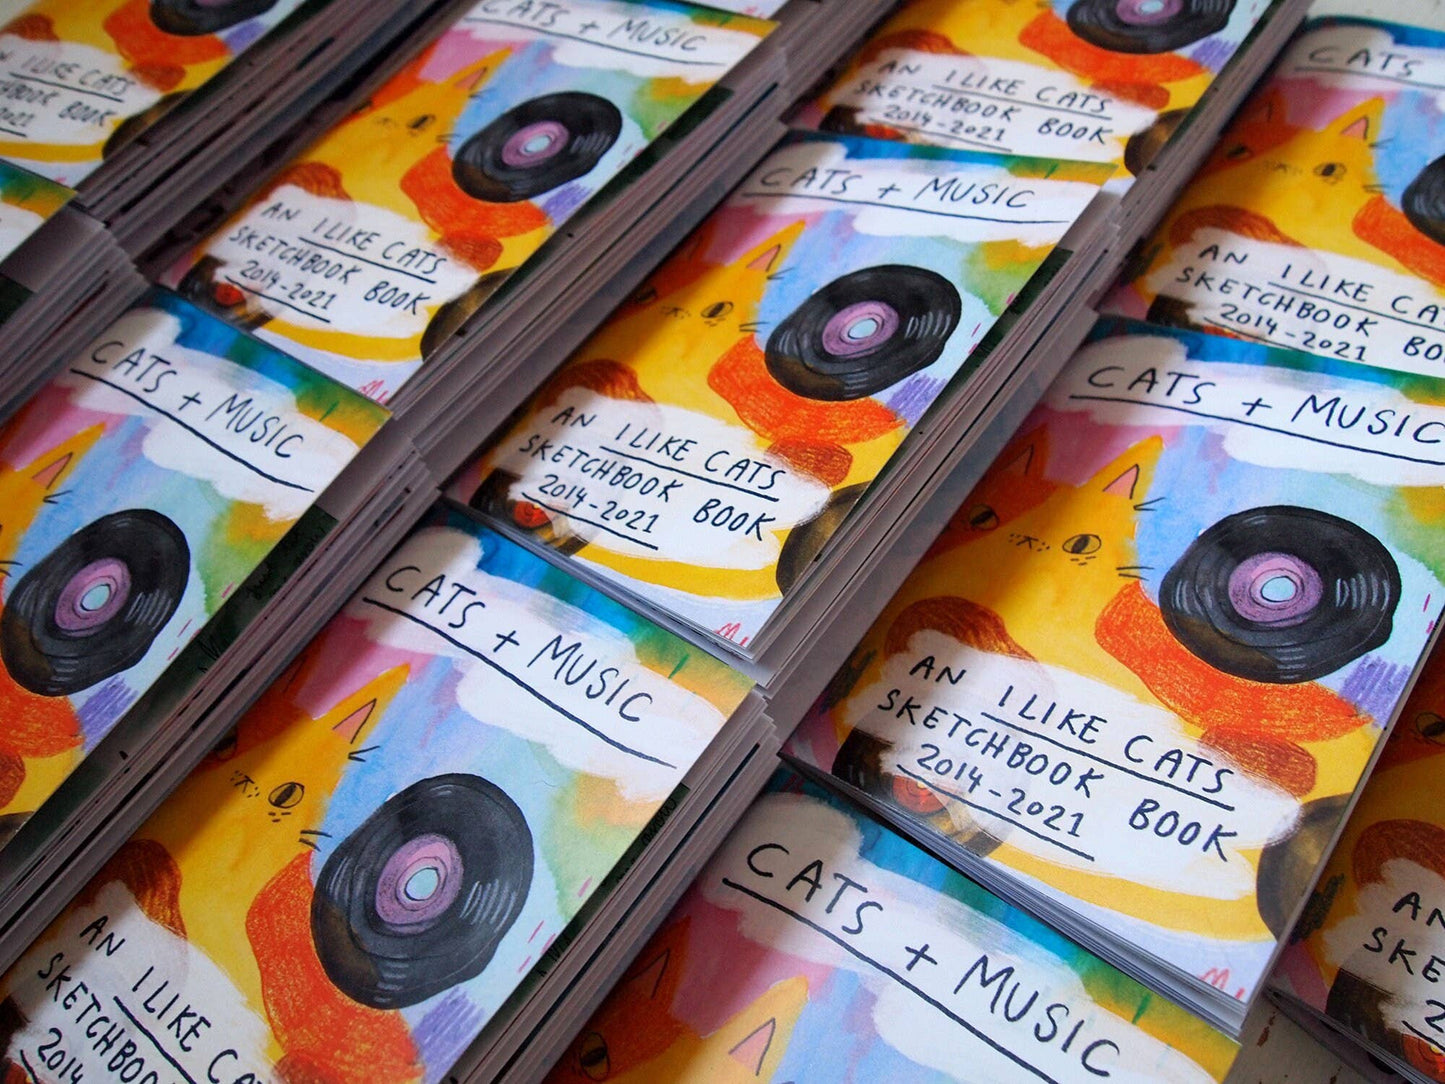 I LIKE CATS
HBOOK BOOK
2021
CATS + MUSIC
AN I LIKE CATS
SKETCHBOOK BOOK
2014-2021
AN I LIKE CATS
SKETCHBOOK BOOK
2014-2021
CATS
AN I LIKE CA
SKETCHBOOK BO
2014-2021
CATS + MUSIC
AN I LIKE CATS
SKETCHBOOK BOOK
2014-2021
CATS + MUSIC
AN I LIKE CATS
SKETCHBOOK BOOK
2014-2021
CATS + MUSIC
CATS + MUSIC
AN I LIKE CA
SKETCHBOO
2014
CATS + MUSIC
AN
SKE
2